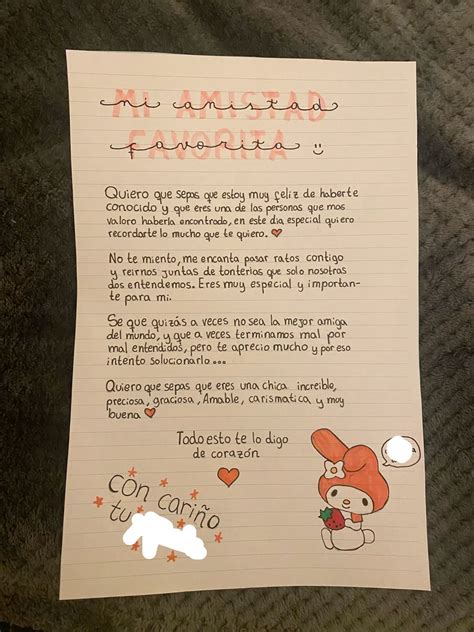 MI AMISTAD
mi amistad
FAVORITA
favorita :)
Quiero que sepas que estoy muy feliz de haberte
conocido y que eres una de las personas que mas
valoro haberla encontrado, en este dia especial quiero
recordarte lo mucho que te quiero. ♥
No te miento, me encanta pasar ratos contigo
y reirnos juntas de tonterias que solo nosotras
dos entendemos. Eres muy especial y importan-
te para mi.
Se que quizás a veces no sea la mejor amiga
del mundo, y que a veces terminamos mal por
mal entendidos, pero te aprecio mucho y por eso
intento solucionarlo...
Quiero que sepas que eres una chica increible,
preciosa, graciosa, Amable, carismatica y muy
buena ♥
Todo esto te lo digo
de corazón
con cariño
tu